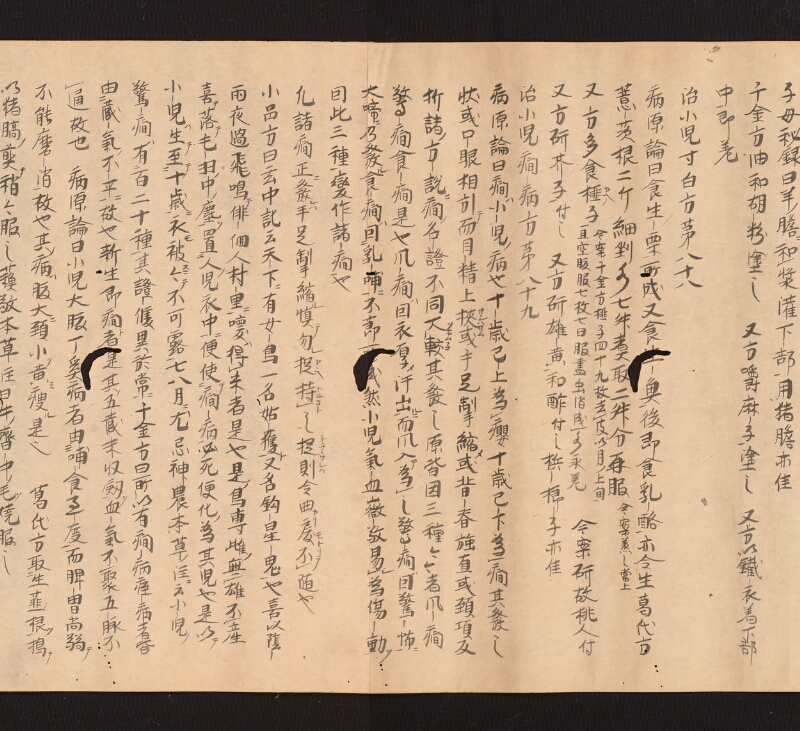 子母秘録曰羊膽和漿灌下部一用猪膽亦佳
千金方油和胡粉塗之　又方嚼麻子塗之　又方以鐵衣着下部
中即差
治小兒寸白方第八十八
病源論曰食生栗所成又食生魚後即食乳酪亦令生葛氏方
薏苡根二斤細剉水七升煮取二升分再服今案蒸之當上
又方多食榧子今案千金方榧子四十九枚去皮以月上旬
旦空服服七枚七日服盡虫消成水永差　今案研故桃人付
又方研芥子付之　又方研雄黄和酢付之檳榔子亦佳
治小兒癇病方第八十九
病源論曰癇小兒病也十歳已上為癭十歳已下為癇其發之
状或口眼相引而目精上揺或手足掣縮或背脊強直或頚項反
折諸方説癇名證不同大較其發之原皆因三種々々者風癇
驚癇食癇是也風癇因衣厚汗出而風入為之驚癇因驚怖
大啼乃發食癇因乳哺不節所成然小兒氣血微弱易為傷動
因此三種變作諸癇也
凡諸癇正發手足掣縮慎勿捉持之捉則令曲戻不随也
小品方曰玄中記云天下有女鳥一名姑獲又名鈎星鬼也喜以陰
雨夜過飛鳴徘徊人村里喚得来者是也是鳥専雌無雄不産
喜落毛羽中塵置人兒衣中便使癇病必死便化為其兒也是以
小兒生至十歳衣被々不可露七八月尤忌神農本草注云小兒
驚癇有百二十種其證候異於常千金方曰所以有癇病痙病者皆
由蔵氣不平故也新生即癇者是其五蔵未收斂血氣不聚五脉不
通故也　病源論曰小兒大胘丁奚病者由哺食過度而脾胃尚弱
不能磨消故也其病腹大頚小黄痩是也　葛氏方取生韮根搗
以猪膏煎稍々服之蘇敬本草注曰牛臍中毛燒服之